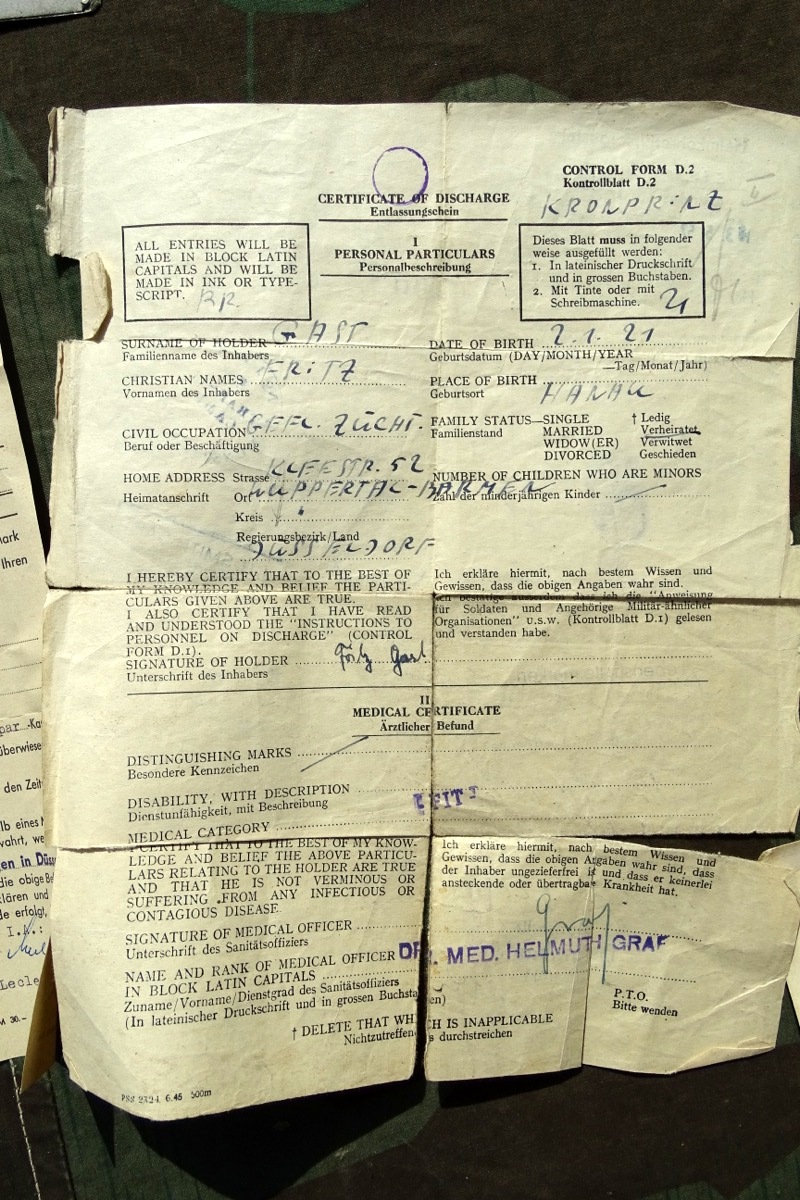 CONTROL FORM D.2
Kontrollblatt D.2
KRONPRINZ
CERTIFICATE OF DISCHARGE
Entlassungschein
I
PERSONAL PARTICULARS
Personalbeschreibung
ALL ENTRIES WILL BE
MADE IN BLOCK LATIN
CAPITALS AND WILL BE
MADE IN INK OR TYPE-
SCRIPT.
Dieses Blatt muss in folgender
weise ausgefüllt werden:
1. In lateinischer Druckschrift
und in grossen Buchstaben.
2. Mit Tinte oder mit
Schreibmaschine.
21
SURNAME OF HOLDER GAST
Familienname des Inhabers
CHRISTIAN NAMES FRITZ
Vornamen des Inhabers
CIVIL OCCUPATION GEFL. ZÜCHT.
Beruf oder Beschäftigung
HOME ADDRESS Strasse KLEESTR. 52
Heimatanschrift Ort WUPPERTAL-BARMEN
Kreis
Regierungsbezirk/Land
DÜSSELDORF
DATE OF BIRTH 2.1.21
Geburtsdatum (DAY/MONTH/YEAR
—Tag/Monat/Jahr)
PLACE OF BIRTH
Geburtsort HANAU
FAMILY STATUS—SINGLE † Ledig
Familienstand MARRIED Verheiratet
WIDOW(ER) Verwitwet
DIVORCED Geschieden
NUMBER OF CHILDREN WHO ARE MINORS
Zahl der minderjährigen Kinder
I HEREBY CERTIFY THAT TO THE BEST OF
MY KNOWLEDGE AND BELIEF THE PARTI-
CULARS GIVEN ABOVE ARE TRUE.
I ALSO CERTIFY THAT I HAVE READ
AND UNDERSTOOD THE "INSTRUCTIONS TO
PERSONNEL ON DISCHARGE" (CONTROL
FORM D.1).
SIGNATURE OF HOLDER Fritz Gast
Unterschrift des Inhabers
Ich erkläre hiermit, nach bestem Wissen und
Gewissen, dass die obigen Angaben wahr sind.
Ich bestätige ausserdem dass ich die "Anweisung
für Soldaten und Angehörige Militär-ähnlicher
Organisationen" u.s.w. (Kontrollblatt D.1) gelesen
und verstanden habe.
II
MEDICAL CERTIFICATE
Ärztlicher Befund
DISTINGUISHING MARKS
Besondere Kennzeichen
DISABILITY, WITH DESCRIPTION
Dienstunfähigkeit, mit Beschreibung
FIT
MEDICAL CATEGORY
I CERTIFY THAT TO THE BEST OF MY KNOW-
LEDGE AND BELIEF THE ABOVE PARTICU-
LARS RELATING TO THE HOLDER ARE TRUE
AND THAT HE IS NOT VERMINOUS OR
SUFFERING FROM ANY INFECTIOUS OR
CONTAGIOUS DISEASE.
Ich erkläre hiermit, nach bestem Wissen und
Gewissen, dass die obigen Angaben wahr sind, dass
der Inhaber ungezieferfrei ist und dass er keinerlei
ansteckende oder übertragbare Krankheit hat.
SIGNATURE OF MEDICAL OFFICER Graf
Unterschrift des Sanitätsoffiziers
DR. MED. HELMUTH GRAF
NAME AND RANK OF MEDICAL OFFICER
IN BLOCK LATIN CAPITALS
Zuname/Vorname/Dienstgrad des Sanitätsoffiziers
(In lateinischer Druckschrift und in grossen Buchstaben)
P.T.O.
Bitte wenden
† DELETE THAT WHICH IS INAPPLICABLE
Nichtzutreffendes durchstreichen
PSS 2324 6.45 500m